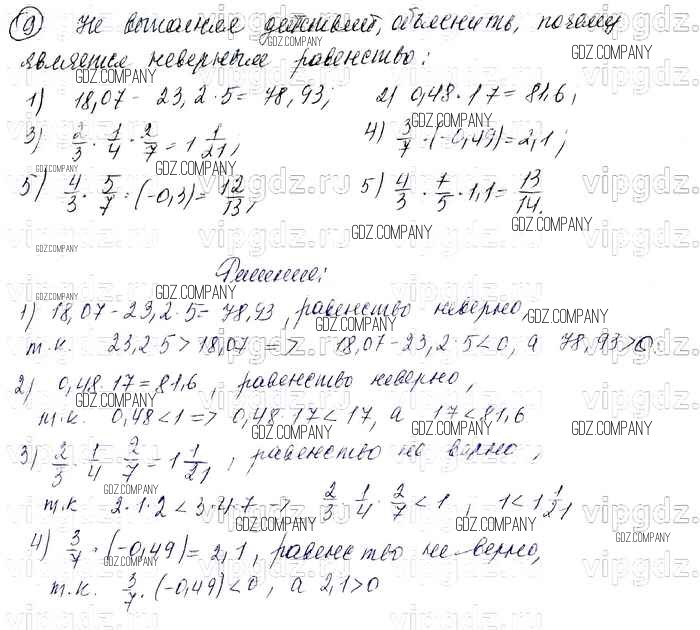 9) Не выполняя действий, объяснить, почему
является неверным равенство:
1) 18,07 - 23,2 · 5 = 78,93; 2) 0,48 · 17 = 81,6;
3) 2/3 · 1/4 · 2/7 = 1 1/21; 4) 3/7 · (-0,49) = 2,1;
5) 4/3 · 5/7 : (-0,3) = 12/13; 5) 4/3 · 7/5 · 1,1 = 13/14.
Решение:
1) 18,07 - 23,2 · 5 = 78,93, равенство неверно,
т.к. 23,2·5 > 18,07 => 18,07 - 23,2·5 < 0, а 78,93 > 0.
2) 0,48 · 17 = 81,6, равенство неверно,
т.к. 0,48 < 1 => 0,48 · 17 < 17, а 17 < 81,6
3) 2/3 · 1/4 · 2/7 = 1 1/21, равенство не верно,
т.к 2·1·2 < 3·4·7 => 2/3 · 1/4 · 2/7 < 1, 1 < 1 1/21
4) 3/7 · (-0,49) = 2,1, равенство не верно,
т.к. 3/7 · (-0,49) < 0, а 2,1 > 0
vipgdz.ru
GDZ.COMPANY